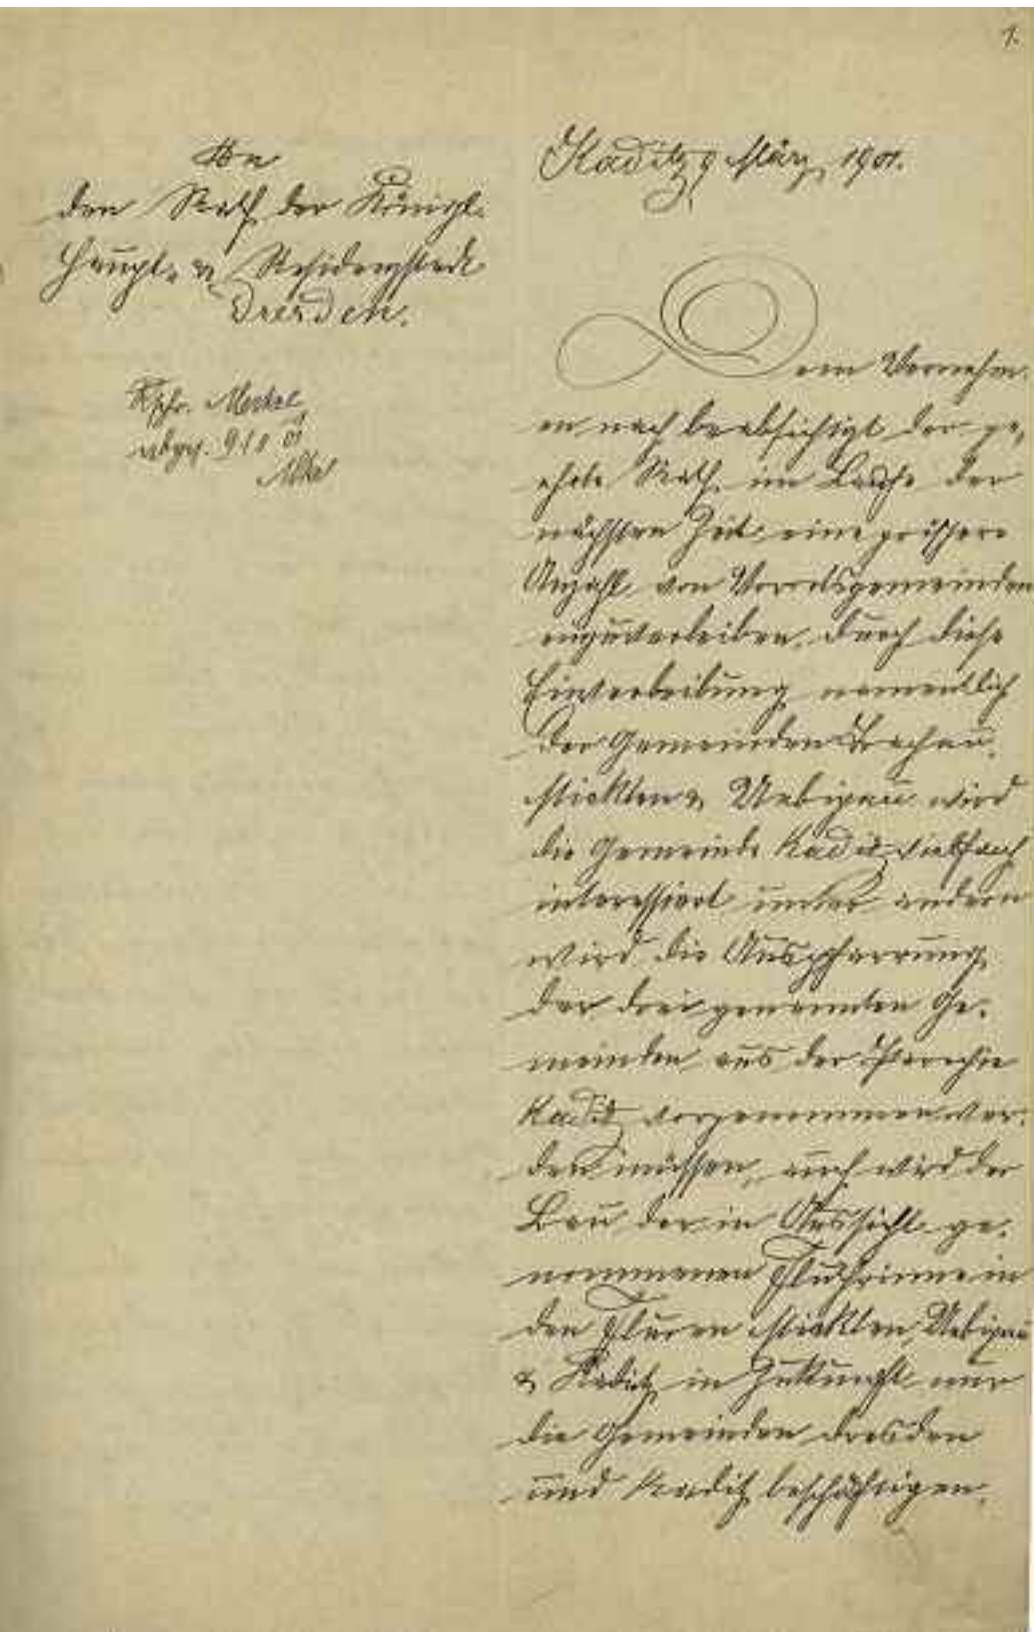 1.
An
den Rath der Königl.
Haupt- & Residenzstadt
Dresden.
Kaditz, 9 März 1901.
Dem Vernehm-
en nach beabsichtigt der ge-
ehrte Rath im Laufe der
nächsten Zeit eine grössere
Anzahl von Vorortsgemeinden
einzuverleiben. Durch diese
Einverleibung namentlich
der Gemeinden Trachau,
Mickten & Uebigau wird
die Gemeinde Kaditz vielfach
interessiert unter andern
wird die Auspfarrung
der drei genannten Ge-
meinden aus der Parochie
Kaditz vorgenommen wer-
den müssen, auch wird der
Bau der in Aussicht ge-
nommenen Fluthrinne in
den Fluren Mickten, Uebigau
& Kaditz in Zukunft nur
die Gemeinden Dresden
und Kaditz beschäftigen.